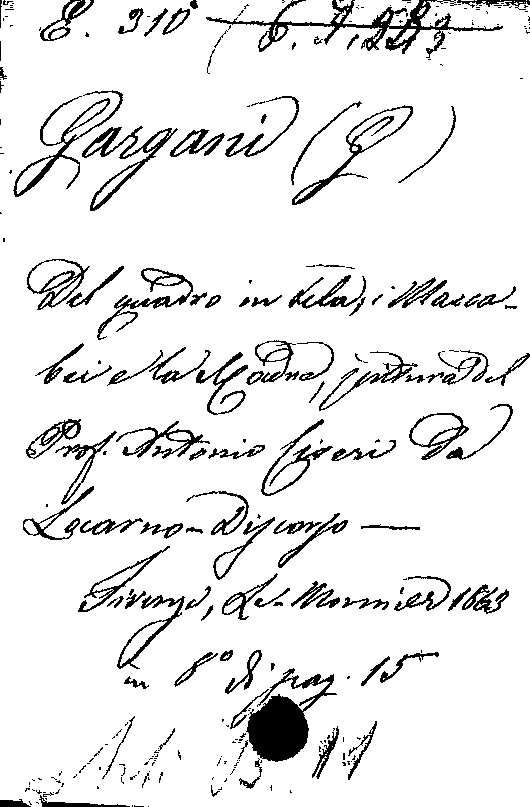 E. 310
Gargani (G)
Del quadro in tela, i Macca-
bei e la Madre, pittura del
Prof. Antonio Ciseri da
Locarno - Discorso —
Firenze, Le-Monnier 1863
in 8° di pag. 15
Arti B. 11